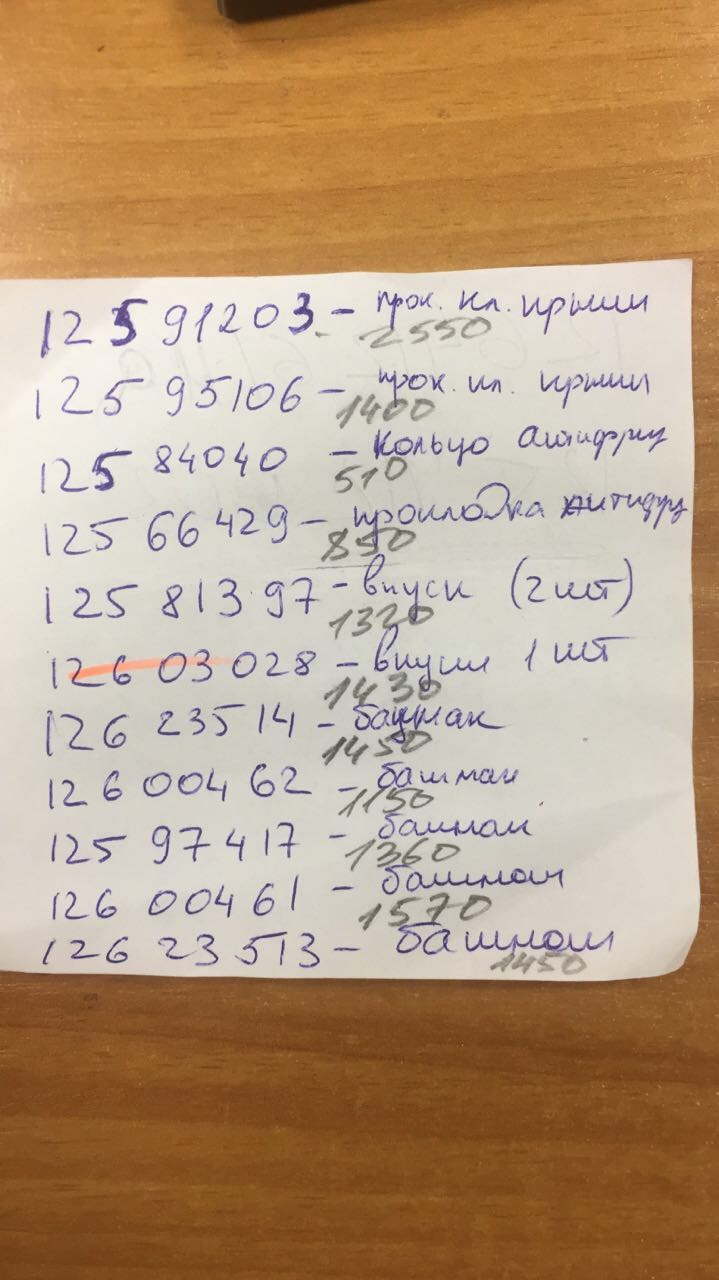 12591203 - прок. кл. крыши
2550
12595106 - прок. кл. крыш
1400
12584040 - кольцо антифриз
510
12566429 - прокладка антифриз
850
12581397 - впуск (2 шт)
1320
12603028 - впуск 1 шт
1430
12623514 - башмак
1450
12600462 - башмак
1150
12597417 - башмак
1360
12600461 - башмак
1570
12623513 - башмак
1450